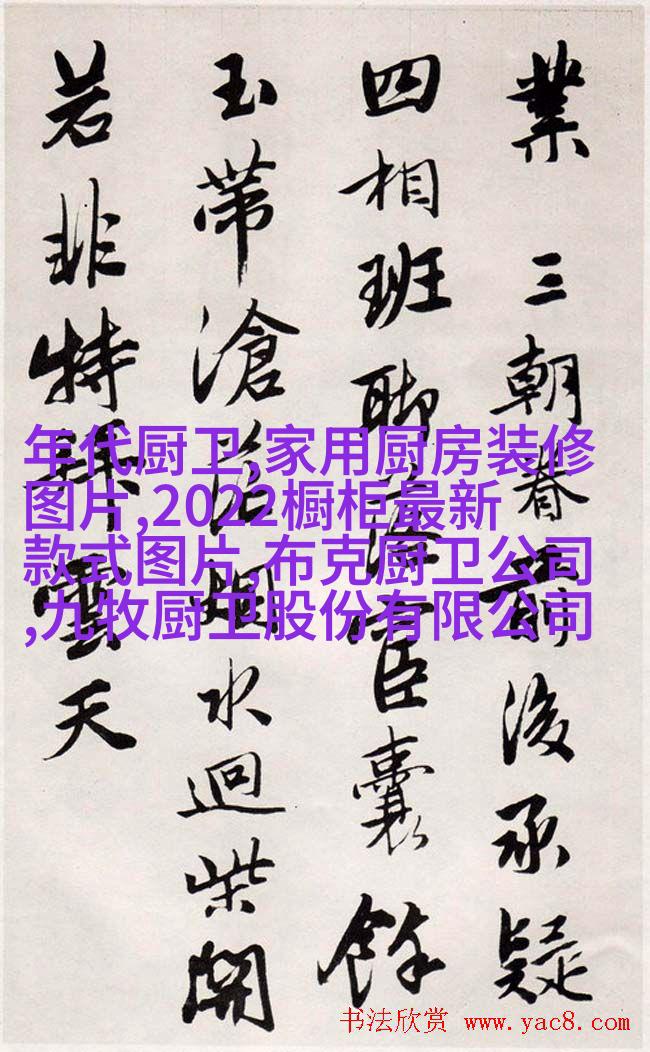 業 三朝眷前後承疑
四相班聯官臣囊餘
玉帶滄水迴柴開
若非特雲天
年代厨卫,家用厨房装修
图片,2022橱柜最新
款式图片,布克厨卫公司
,九牧厨卫股份有限公司
书法欣赏 www.yac8.com